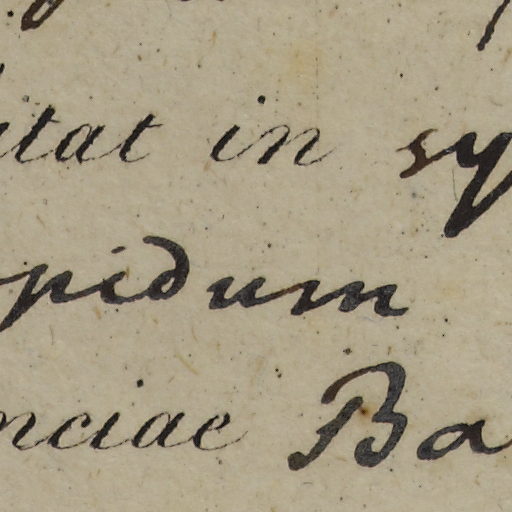 itat in sy
pidum
nciae Ba